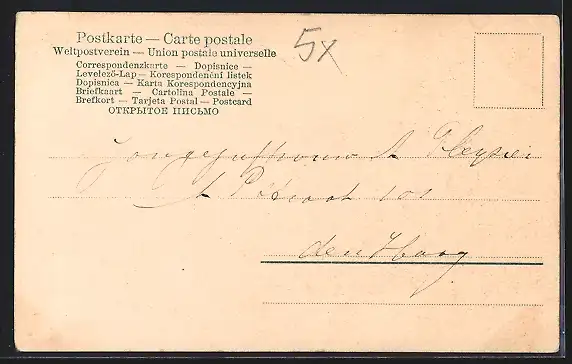 Postkarte — Carte postale
Weltpostverein — Union postale universelle
Correspondenzkarte — Dopisnice —
Levelező-Lap — Korespondenční lístek
Dopisnica — Karta Korespondencyjna
Briefkaart — Cartolina Postale —
Brefkort — Tarjeta Postal — Postcard
ОТКРЫТОЕ ПИСЬМО
5x
Jongejuffrouw A
101
den Haag